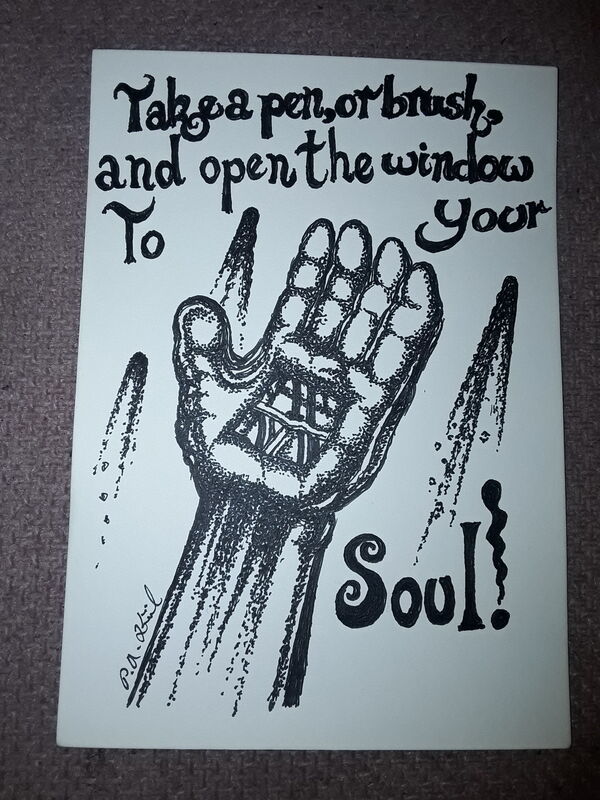 Take a pen, or brush,
and open the window
To Your
Soul!